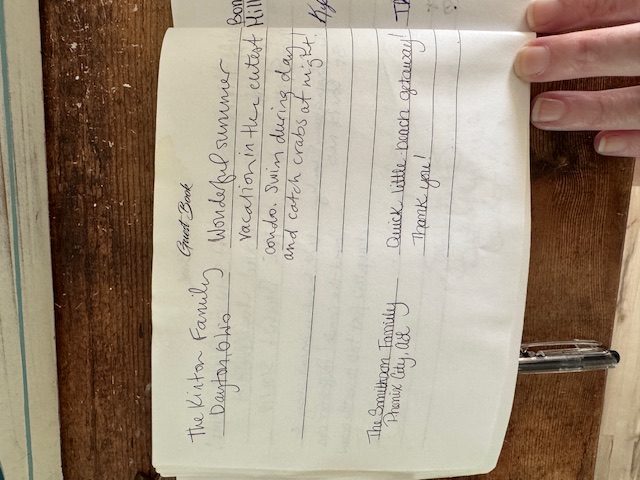 Guest Book
The Kinton Family
Dayton, Ohio
Wonderful summer
vacation in the cutest
condo. Swim during day
and catch crabs at night!
The Smithson Family
Phenix City, AL
Quick little beach getaway!
Thank you!